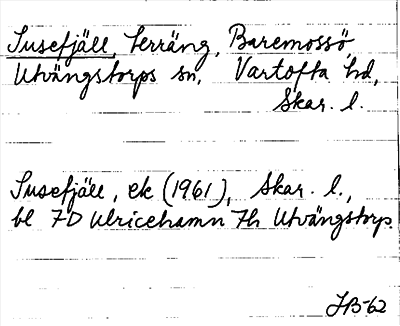 Susefjäll, terräng, Baremossö
Utvängstorps sn, Vartofta hd,
Skar. l.
Susefjäll, ek (1961), Skar. l.,
bl 7D Ulricehamn 7h Utvängstorp.
JB-62